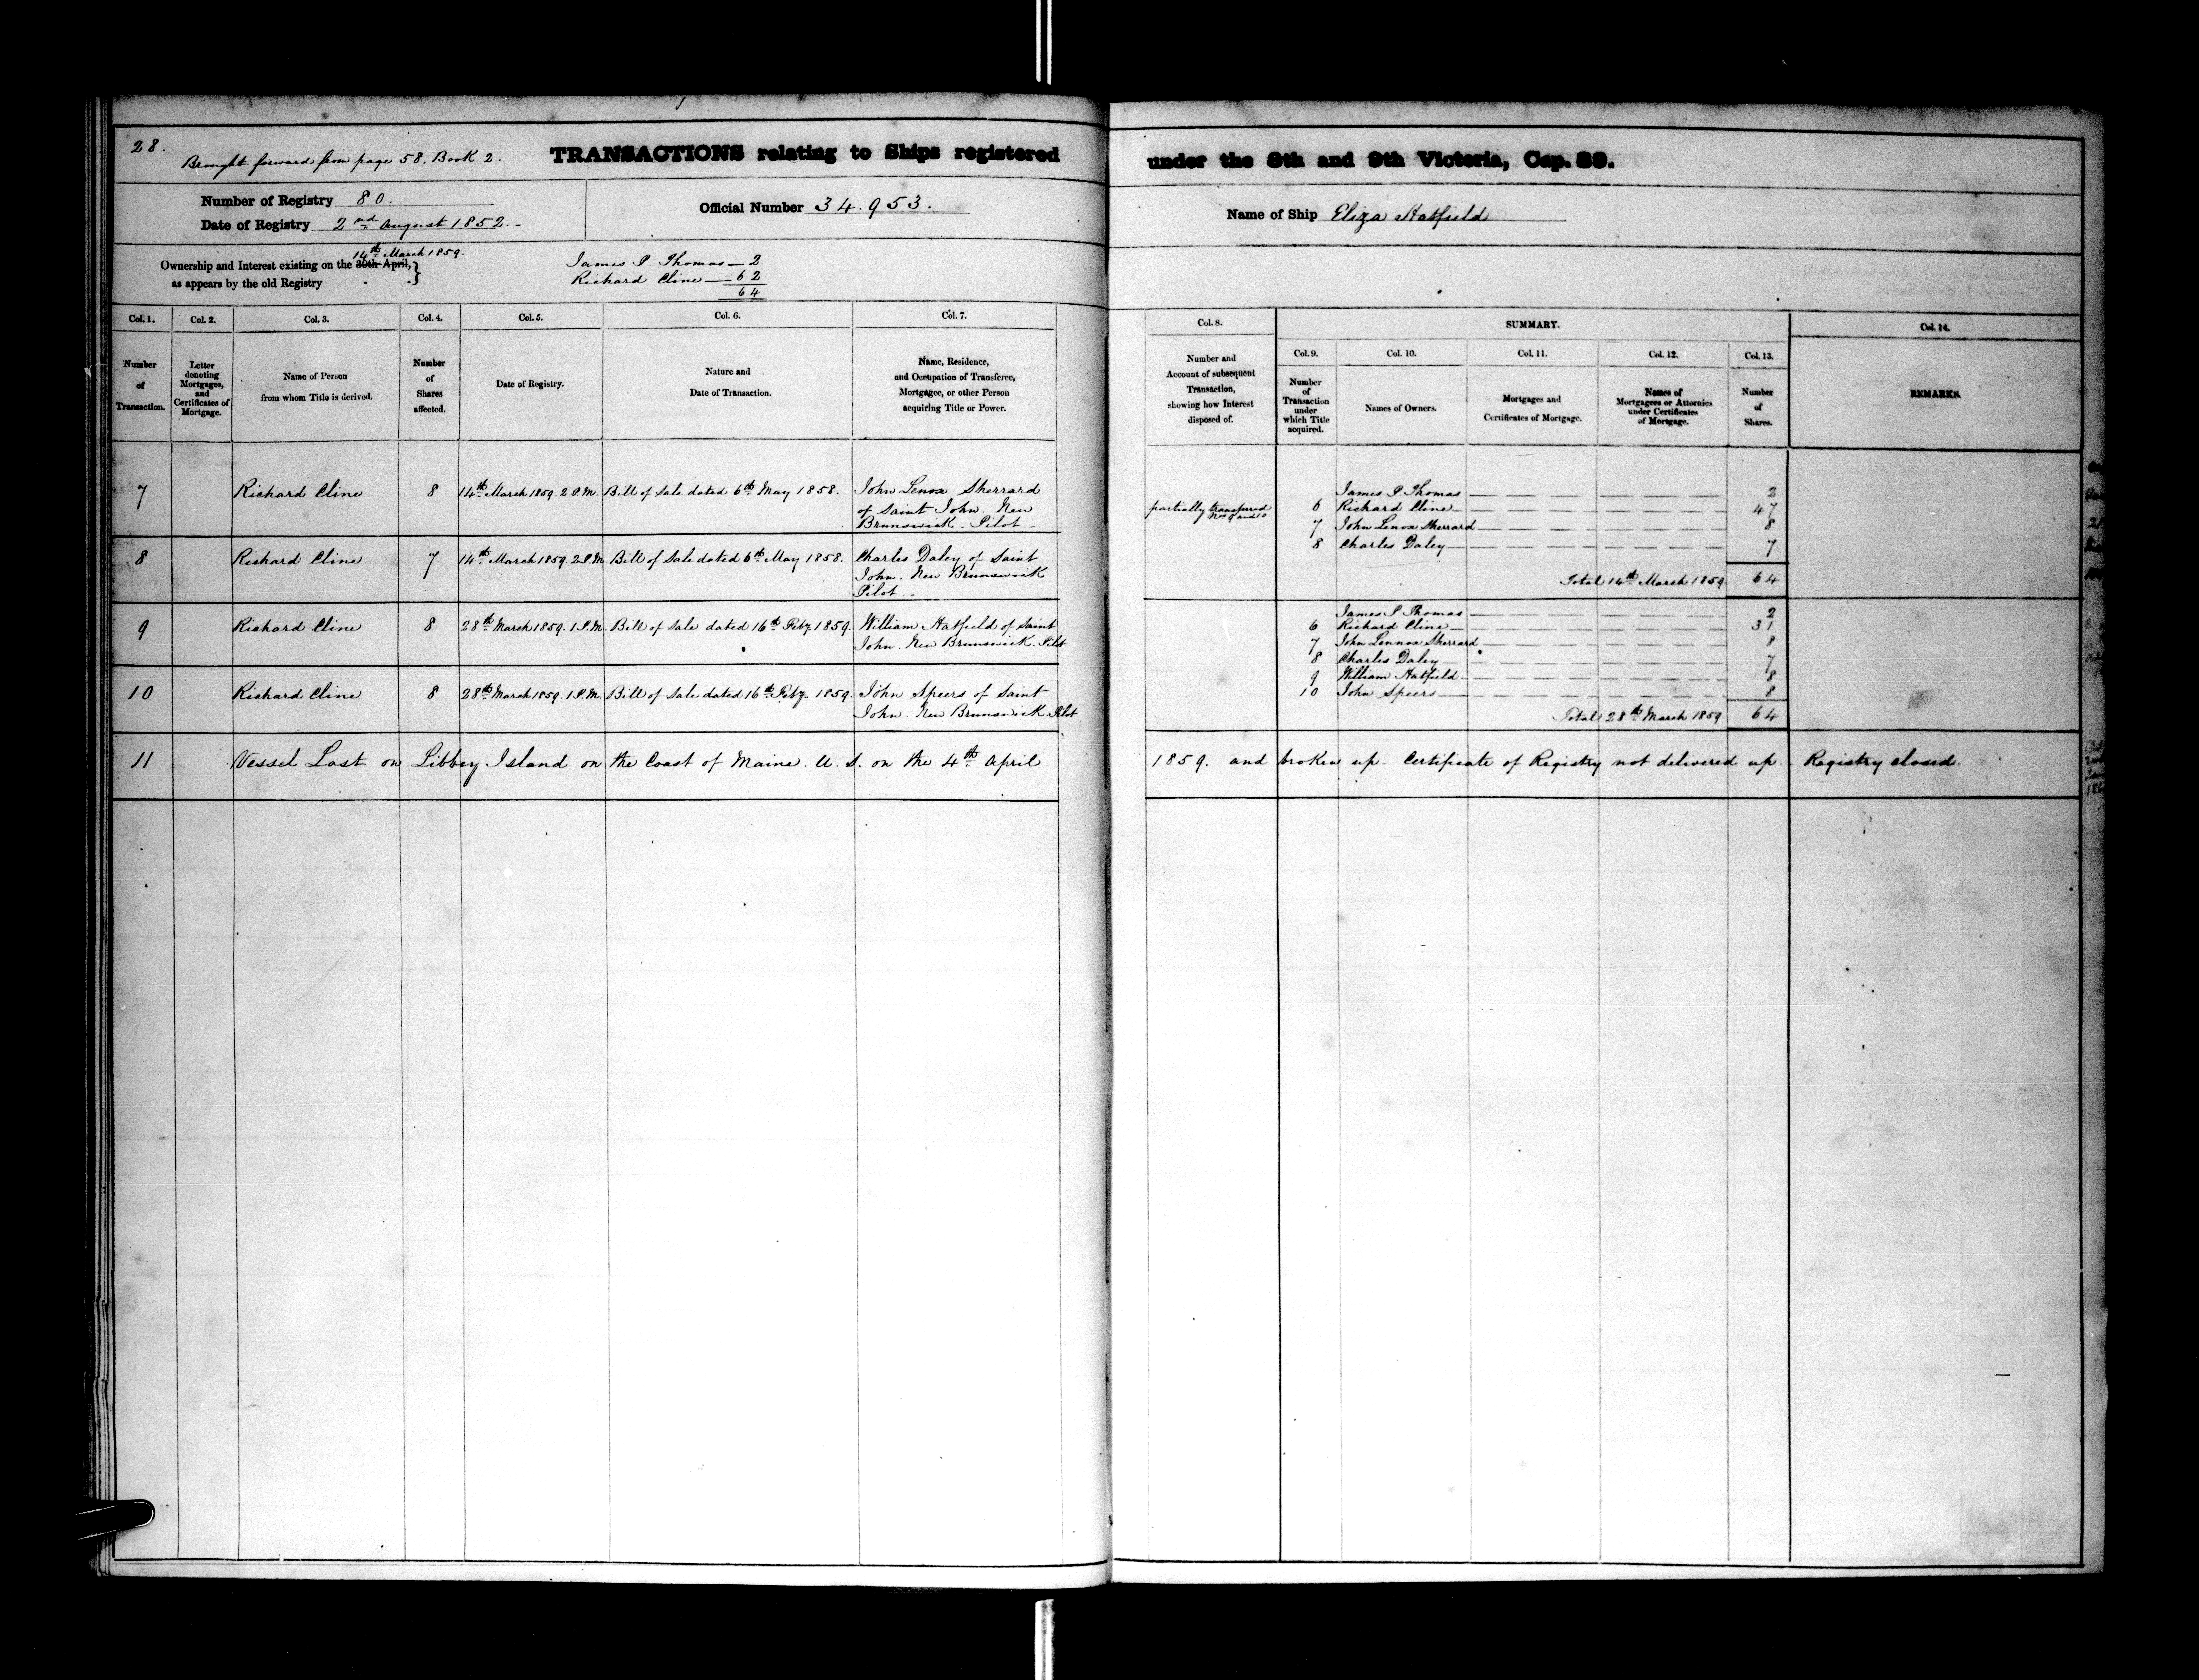 28.
Brought forward from page 58. Book 2.
TRANSACTIONS relating to Ships registered under the 8th and 9th Victoria, Cap. 89.
Number of Registry 80.
Date of Registry 2nd August 1852.
Official Number 34.953.
Name of Ship Eliza Hatfield
14th March 1859.
Ownership and Interest existing on the 30th April,
as appears by the old Registry
James P. Thomas — 2
Richard Cline — 62
64
Col. 1. Col. 2. Col. 3. Col. 4. Col. 5. Col. 6. Col. 7.
Number of Transaction.
Letter denoting Mortgages, and Certificates of Mortgage.
Name of Person from whom Title is derived.
Number of Shares affected.
Date of Registry.
Nature and Date of Transaction.
Name, Residence, and Occupation of Transferee, Mortgagee, or other Person acquiring Title or Power.
Col. 8. SUMMARY. Col. 14.
Col. 9. Col. 10. Col. 11. Col. 12. Col. 13.
Number and Account of subsequent Transaction, showing how Interest disposed of.
Number of Transaction under which Title acquired.
Names of Owners.
Mortgages and Certificates of Mortgage.
Names of Mortgagees or Attornies under Certificates of Mortgage.
Number of Shares.
REMARKS.
7 Richard Cline 8 14th March 1859. 2 P.M. Bill of Sale dated 6th May 1858. John Lenox Sherrard
of Saint John. New
Brunswick. Pilot
8 Richard Cline 7 14th March 1859. 2 P.M. Bill of Sale dated 6th May 1858. Charles Daley of Saint
John. New Brunswick
Pilot
9 Richard Cline 8 28th March 1859. 1 P.M. Bill of Sale dated 16th Feby. 1859. William Hatfield of Saint
John. New Brunswick. Pilot
10 Richard Cline 8 28th March 1859. 1 P.M. Bill of Sale dated 16th Feby. 1859. John Speers of Saint
John. New Brunswick Pilot
partially transferred
Nos 9 and 10
James P Thomas 2
6 Richard Cline 47
7 John Lenox Sherrard 8
8 Charles Daley 7
Total 14th March 1859 64
James P Thomas 2
6 Richard Cline 31
7 John Lennox Sherrard 8
8 Charles Daley 7
9 William Hatfield 8
10 John Speers 8
Total 28th March 1859 64
11 Vessel Lost on Libbey Island on the Coast of Maine. U. S. on the 4th April 1859. and broken up. Certificate of Registry not delivered up. Registry closed.